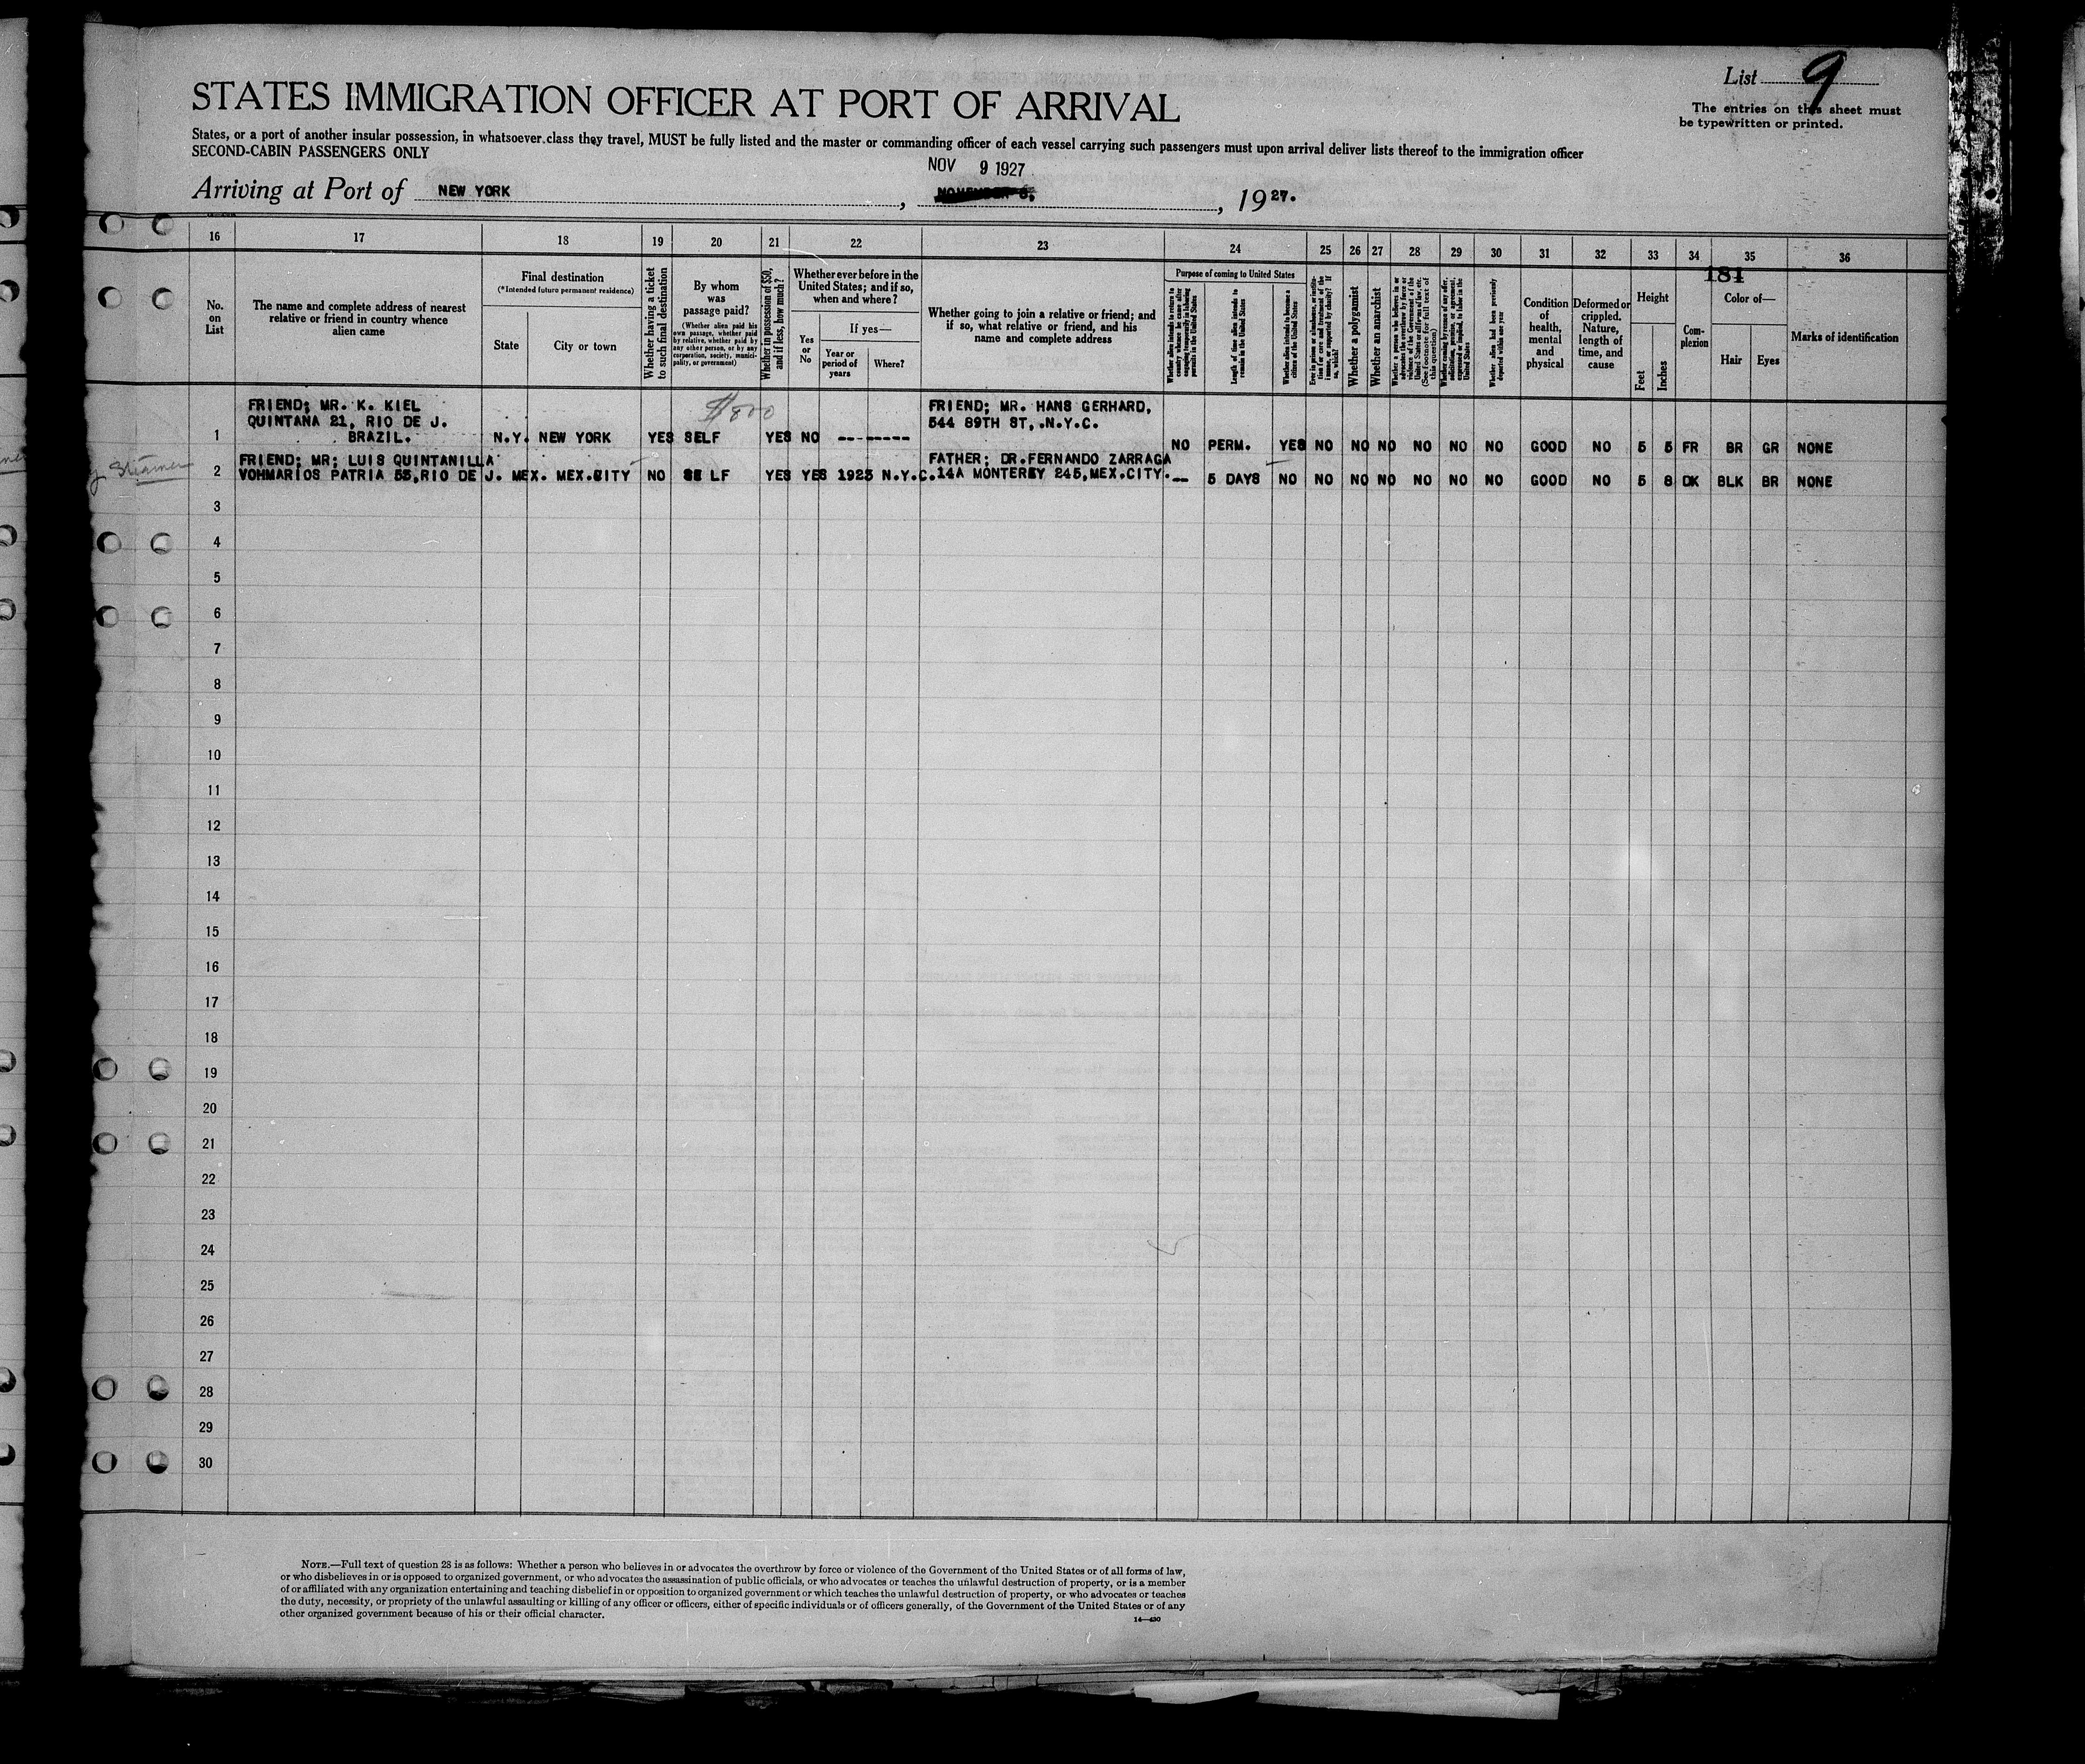 List 9
The entries on this sheet must
be typewritten or printed.
STATES IMMIGRATION OFFICER AT PORT OF ARRIVAL
States, or a port of another insular possession, in whatsoever class they travel, MUST be fully listed and the master or commanding officer of each vessel carrying such passengers must upon arrival deliver lists thereof to the immigration officer
SECOND-CABIN PASSENGERS ONLY
NOV 9 1927
Arriving at Port of NEW YORK, NOVEMBER 8, 1927.
16 17 18 19 20 21 22 23 24 25 26 27 28 29 30 31 32 33 34 35 36
181
No.
on
List
The name and complete address of nearest
relative or friend in country whence
alien came
Final destination
(*Intended future permanent residence)
State
City or town
Whether having a ticket
to such final destination
By whom
was
passage paid?
(Whether alien paid his
own passage, whether paid
by relative, whether paid by
any other person, or by any
corporation, society, munici-
pality, or government)
Whether in possession of $50,
and if less, how much?
Whether ever before in the
United States; and if so,
when and where?
Yes
or
No
If yes—
Year or
period of
years
Where?
Whether going to join a relative or friend; and
if so, what relative or friend, and his
name and complete address
Purpose of coming to United States
Whether alien intends to return to
country whence he came after
engaging temporarily in laboring
pursuits in the United States
Length of time alien intends to
remain in the United States
Whether alien intends to become a
citizen of the United States
Ever in prison or almshouse, or institu-
tion for care and treatment of the
insane, or supported by charity? If
so, which?
Whether a polygamist
Whether an anarchist
Whether a person who believes in or
advocates the overthrow by force or
violence of the Government of the
United States or all forms of law, etc.
(See footnote for full text of
this question)
Whether coming by reason of any offer,
solicitation, promise, or agreement,
expressed or implied, to labor in the
United States
Whether alien had been previously
deported within one year
Condition
of
health,
mental
and
physical
Deformed or
crippled.
Nature,
length of
time, and
cause
Height
Feet
Inches
Com-
plexion
Color of—
Hair
Eyes
Marks of identification
$800
FRIEND; MR. K. KIEL
QUINTANA 21, RIO DE J.
BRAZIL.
FRIEND; MR. HANS GERHARD,
544 89TH ST, .N.Y.C.
1 N.Y. NEW YORK YES SELF YES NO -------- NO PERM. YES NO NO NO NO NO NO GOOD NO 5 5 FR BR GR NONE
Steamer
FRIEND; MR; LUIS QUINTANILLA
FATHER; DR.FERNANDO ZARRAGA
2 VOHMARIOS PATRIA 55,RIO DE J. MEX. MEX.CITY NO SELF YES YES 1925 N.Y.C. 14A MONTEREY 245,MEX.CITY. -- 5 DAYS NO NO NO NO NO NO NO GOOD NO 5 8 DK BLK BR NONE
3
4
5
6
7
8
9
10
11
12
13
14
15
16
17
18
19
20
21
22
23
24
25
26
27
28
29
30
NOTE.—Full text of question 28 is as follows: Whether a person who believes in or advocates the overthrow by force or violence of the Government of the United States or of all forms of law,
or who disbelieves in or is opposed to organized government, or who advocates the assassination of public officials, or who advocates or teaches the unlawful destruction of property, or is a member
of or affiliated with any organization entertaining and teaching disbelief in or opposition to organized government or which teaches the unlawful destruction of property, or who advocates or teaches
the duty, necessity, or propriety of the unlawful assaulting or killing of any officer or officers, either of specific individuals or of officers generally, of the Government of the United States or of any
other organized government because of his or their official character.
14—430